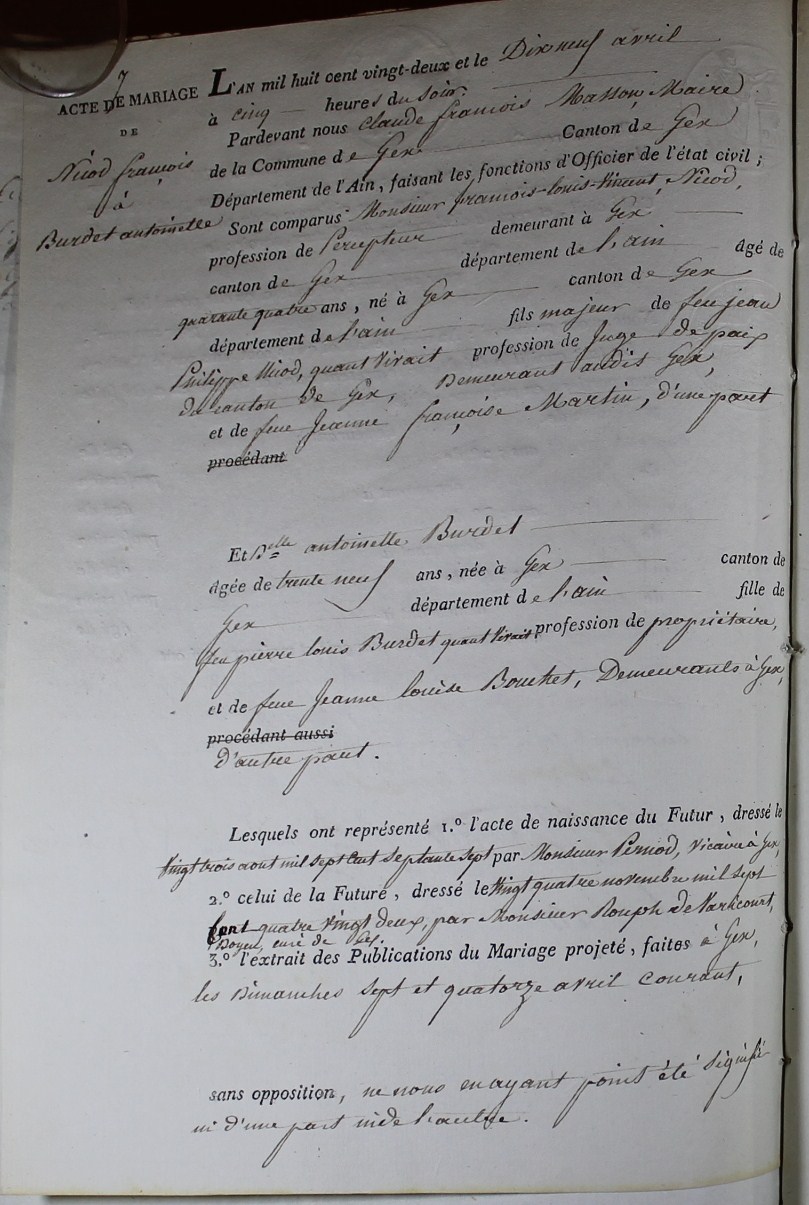 7
ACTE DE MARIAGE
DE
Nicod françois
à
Burdet antoinette
L'AN mil huit cent vingt-deux et le Dix neuf avril
à cinq heures du soir.
Pardevant nous claude françois Masson, Maire
de la Commune de Gex Canton de Gex
Département de l'Ain, faisant les fonctions d'Officier de l'état civil ;
Sont comparus Monsieur francois-louis-vincent Nicod,
profession de Percepteur demeurant à Gex
canton de Gex département de l'ain âgé de
quarante quatre ans, né à Gex canton de Gex
département de l'ain fils majeur de feu jean
Philippe Nicod, quant vivait profession de Juge de paix
du canton de Gex, Demeurant audit Gex,
et de feue Jeanne françoise Martin, d'une part
procédant
Et Delle antoinette Burdet
âgée de trente neuf ans, née à Gex canton de
Gex département de l'ain fille de
feu pierre louis Burdet quant vivait profession de propriétaire,
et de feue Jeanne louise Bouchet, Demeurants à Gex,
procédant aussi
D'autre part.
Lesquels ont représenté 1.º l'acte de naissance du Futur, dressé le
vingt trois aout mil sept cent septante sept par Monsieur Pernod, vicaire à Gex,
2.º celui de la Future, dressé le vingt quatre novembre mil sept
cent quatre vingt deux, par Monsieur Rouph de Varicourt,
Doyen, curé de Gex.
3.º l'extrait des Publications du Mariage projeté, faites à Gex,
les Dimanches sept et quatorze avril courant,
sans opposition, ne nous en ayant point été signifié
ni d'une part ni de l'autre.